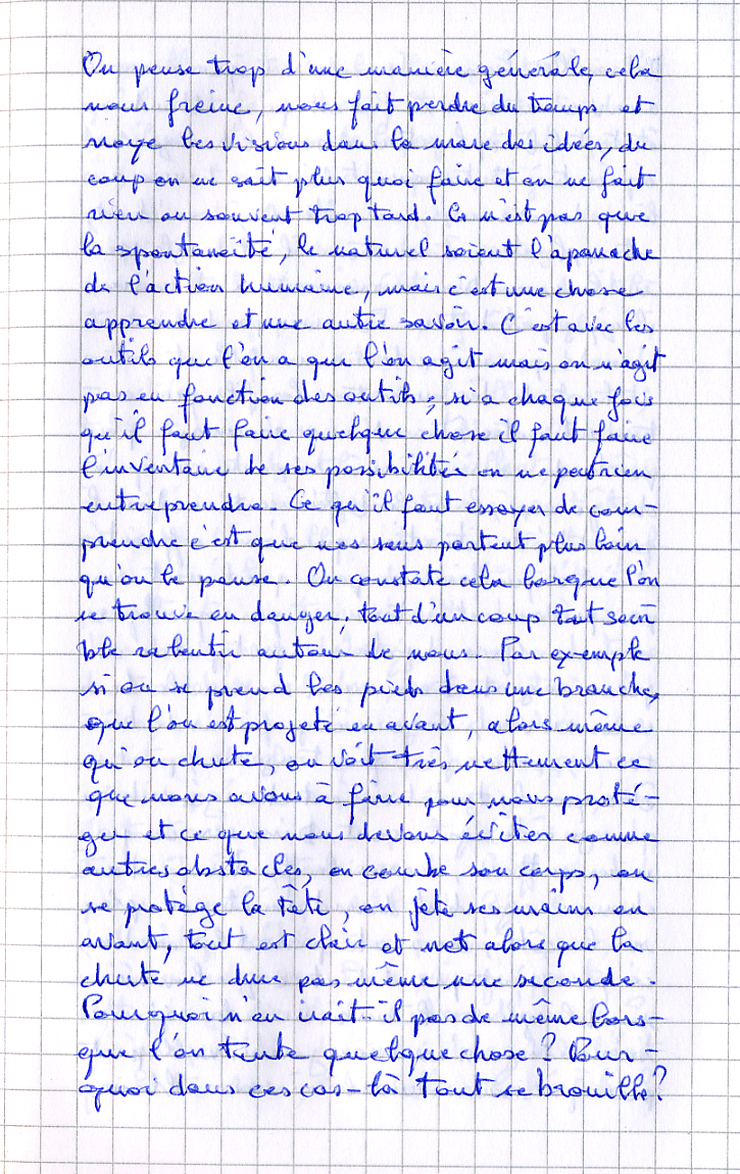 On pense trop d'une manière générale, cela
nous freine, nous fait perdre du temps et
noye les visions dans la mare des idées, du
coup on ne sait plus quoi faire et on ne fait
rien ou souvent trop tard. Ce n'est pas que
la spontanéité, le naturel soient l'apanache
de l'action humaine, mais c'est une chose
apprendre et une autre savoir. C'est avec les
outils que l'on a que l'on agit mais on n'agit
pas en fonction des outils ; si à chaque fois
qu'il faut faire quelque chose il faut faire
l'inventaire de ses possibilités on ne peut rien
entreprendre. Ce qu'il faut essayer de com-
prendre c'est que nos sens portent plus loin
qu'on le pense. On constate cela lorsque l'on
se trouve en danger, tout d'un coup tout sem
ble ralentir autour de nous. Par exemple
si on se prend les pieds dans une branche,
que l'on est projeté en avant, alors même
qu'on chute, on voit très nettement ce
que nous avons à faire pour nous proté-
ger et ce que nous devons éviter comme
autres obstacles, on courbe son corps, on
se protège la tête, on jète ses mains en
avant, tout est clair et net alors que la
chute ne dure pas même une seconde.
Pourquoi n'en irait-il pas de même lors-
que l'on tente quelque chose ? Pour-
quoi dans ces cas-là tout se brouille ?